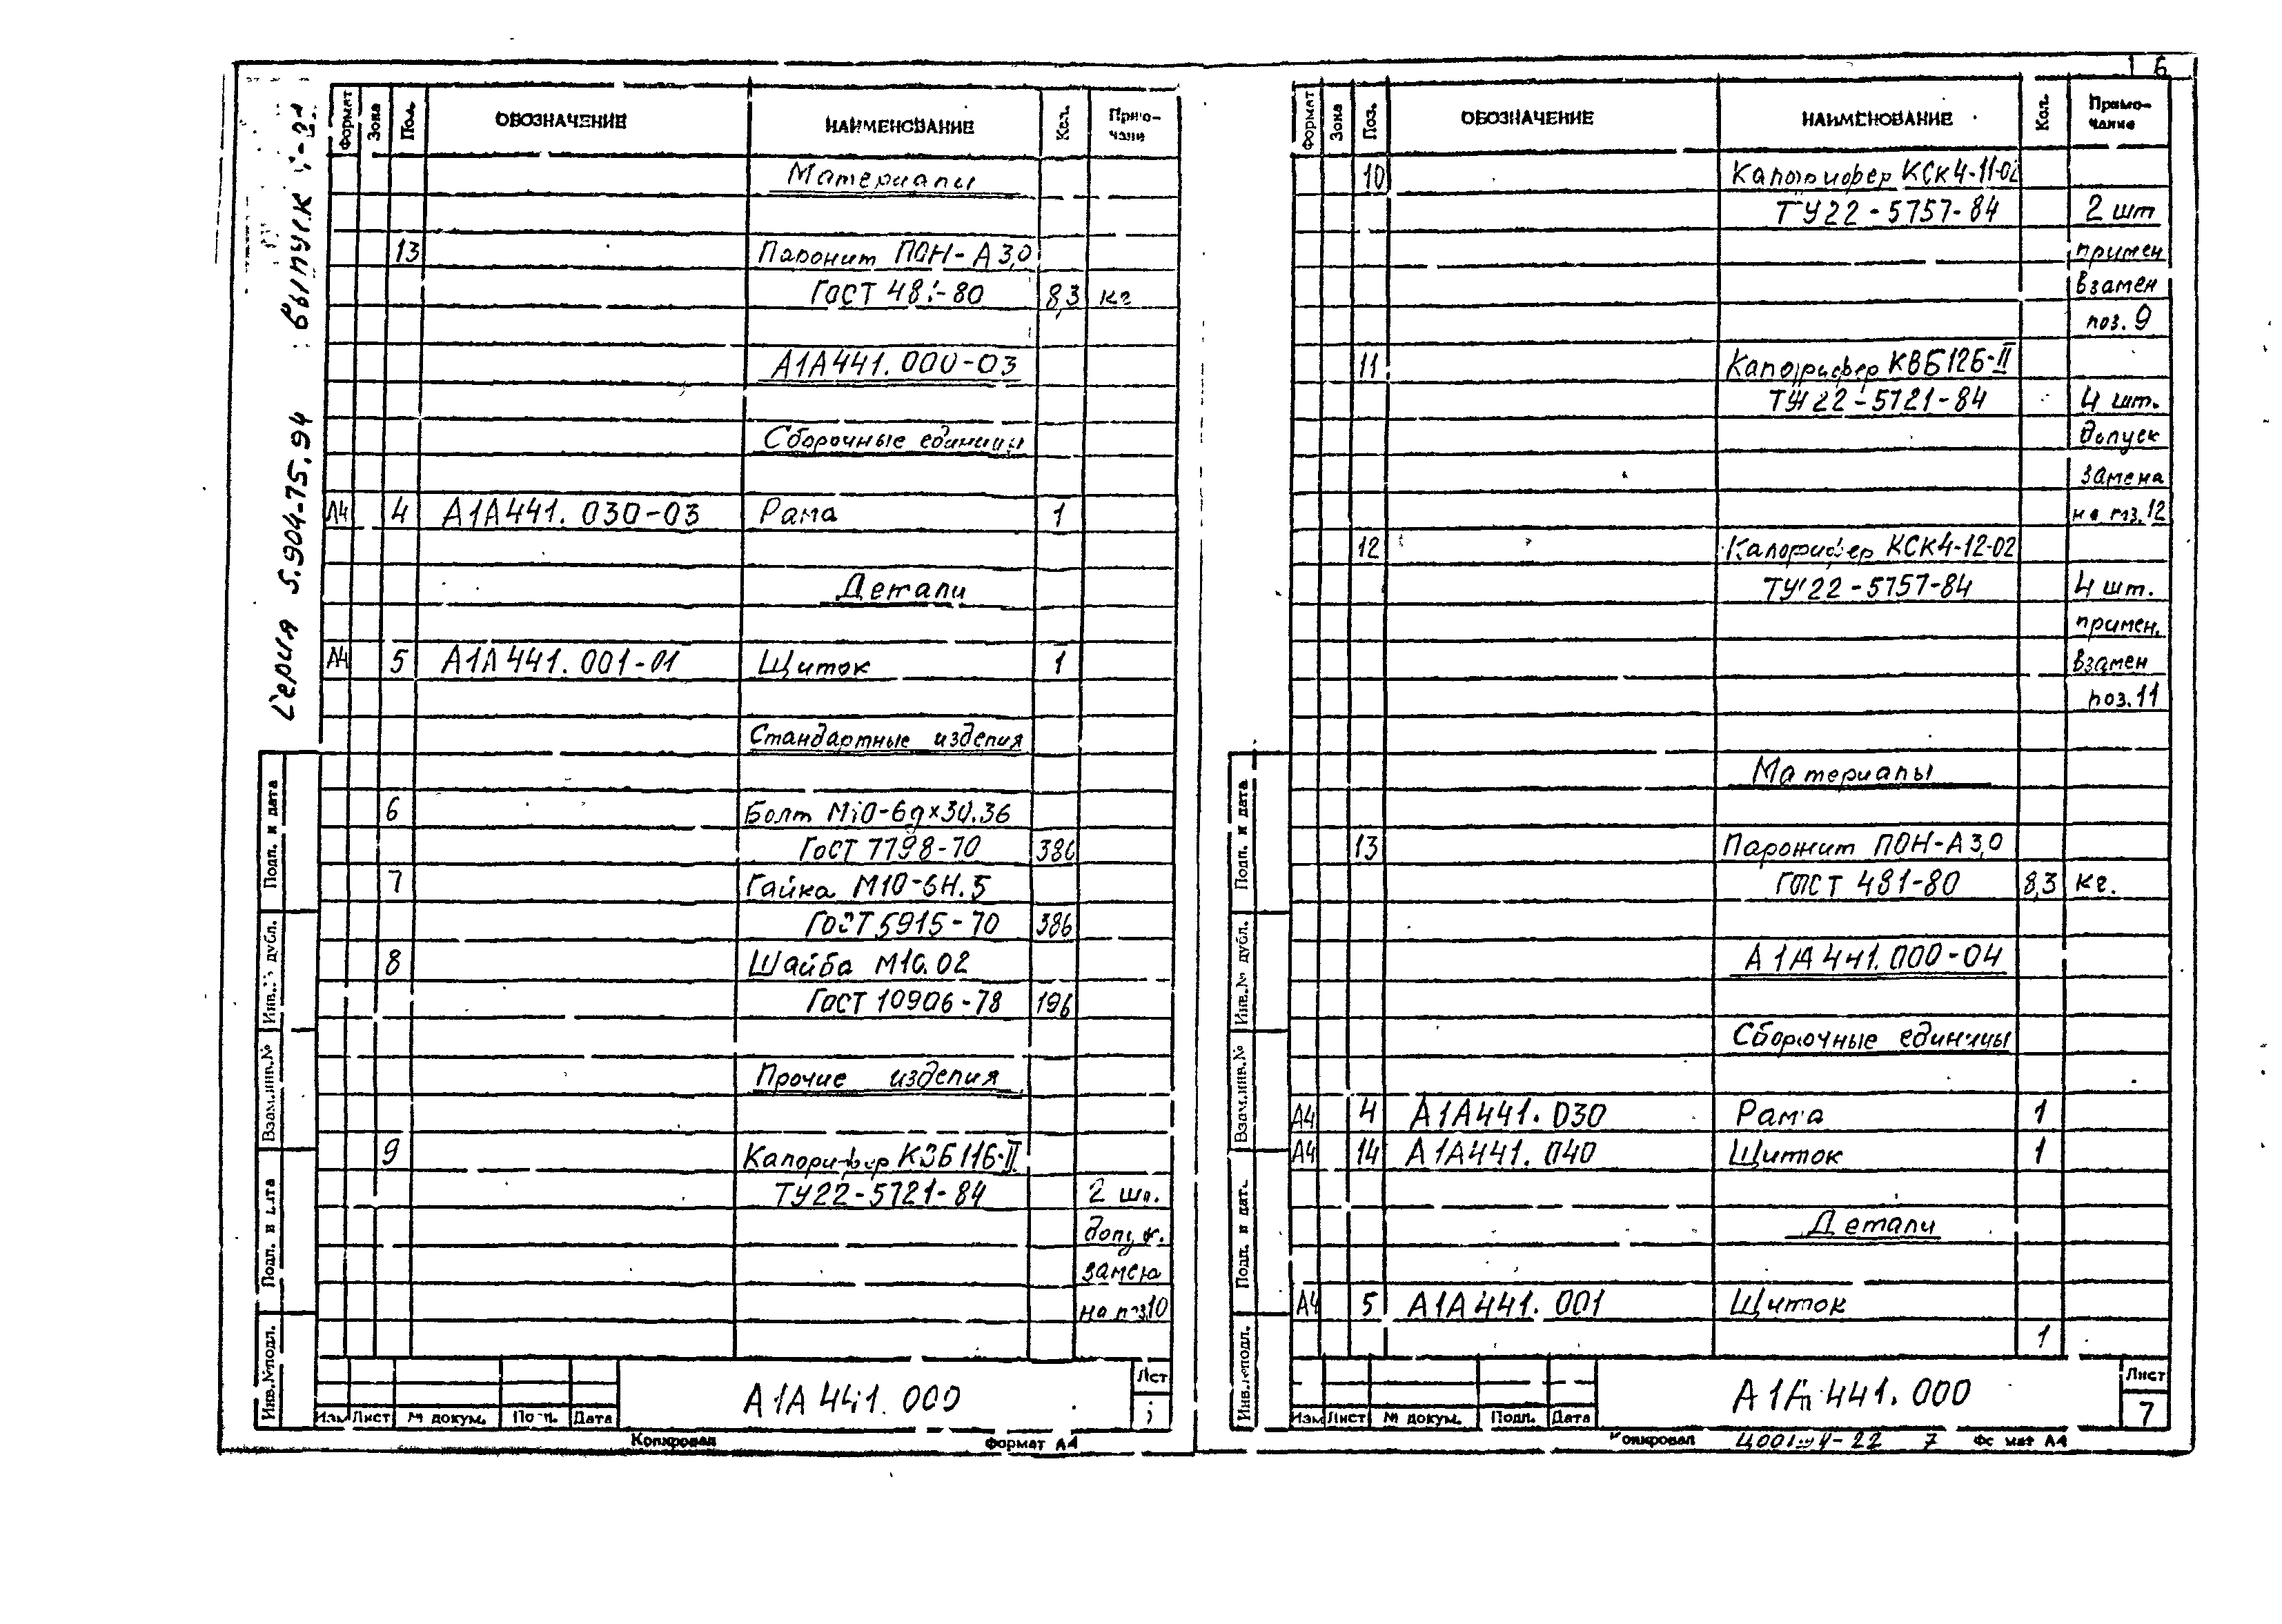 6
Серия 5.904-75.94
Формат Зона Поз. ОБОЗНАЧЕНИЕ НАИМЕНОВАНИЕ Кол.
Материалы
13 Паронит ПОН-А 3,0
8,3 кг
А1А441.000-03
Сборочные единицы
А4 4 А1А441.030-03 Рама 1
Детали
А4 5 А1А441.001-01 Щиток 1
Стандартные изделия
6 Болт М10-6gx30.36
ГОСТ 7798-70 386
7 Гайка М10-6Н.5
ГОСТ 5915-70 386
8 Шайба М10.02
ГОСТ 10906-78 196
Прочие изделия
9 Калорифер КВБ11Б-II
ТУ22-5721-84 2 шт.
допуск.
замена
на поз.10
Подп. и дата
Инв.№ дубл.
Взам.инв.№
Подп. и дата
Инв.№подл.
Изм Лист № докум. Подп. Дата
А1А441.000
Лист
Копировал Формат А4
Формат Зона Поз. ОБОЗНАЧЕНИЕ НАИМЕНОВАНИЕ Кол. Приме-
чание
10 Калорифер КСк4-11-02
ТУ22-5757-84 2 шт
примен
взамен
поз. 9
11 Калорифер КВБ12Б-II
ТУ22-5721-84 4 шт.
допуск
замена
на поз.12
12 Калорифер КСК4-12-02
ТУ22-5757-84 4 шт.
примен.
взамен
поз.11
Материалы
13 Паронит ПОН-А 3,0
ГОСТ 481-80 8,3 кг.
А1А441.000-04
Сборочные единицы
А4 4 А1А441.030 Рама 1
А4 14 А1А441.040 Щиток 1
Детали
А4 5 А1А441.001 Щиток
1
Подп. и дата
Инв.№ дубл.
Взам.инв.№
Подп. и дата
Инв.№подл.
Изм Лист № докум. Подп. Дата
А1А441.000
Лист
7
Копировал 7 Формат А4